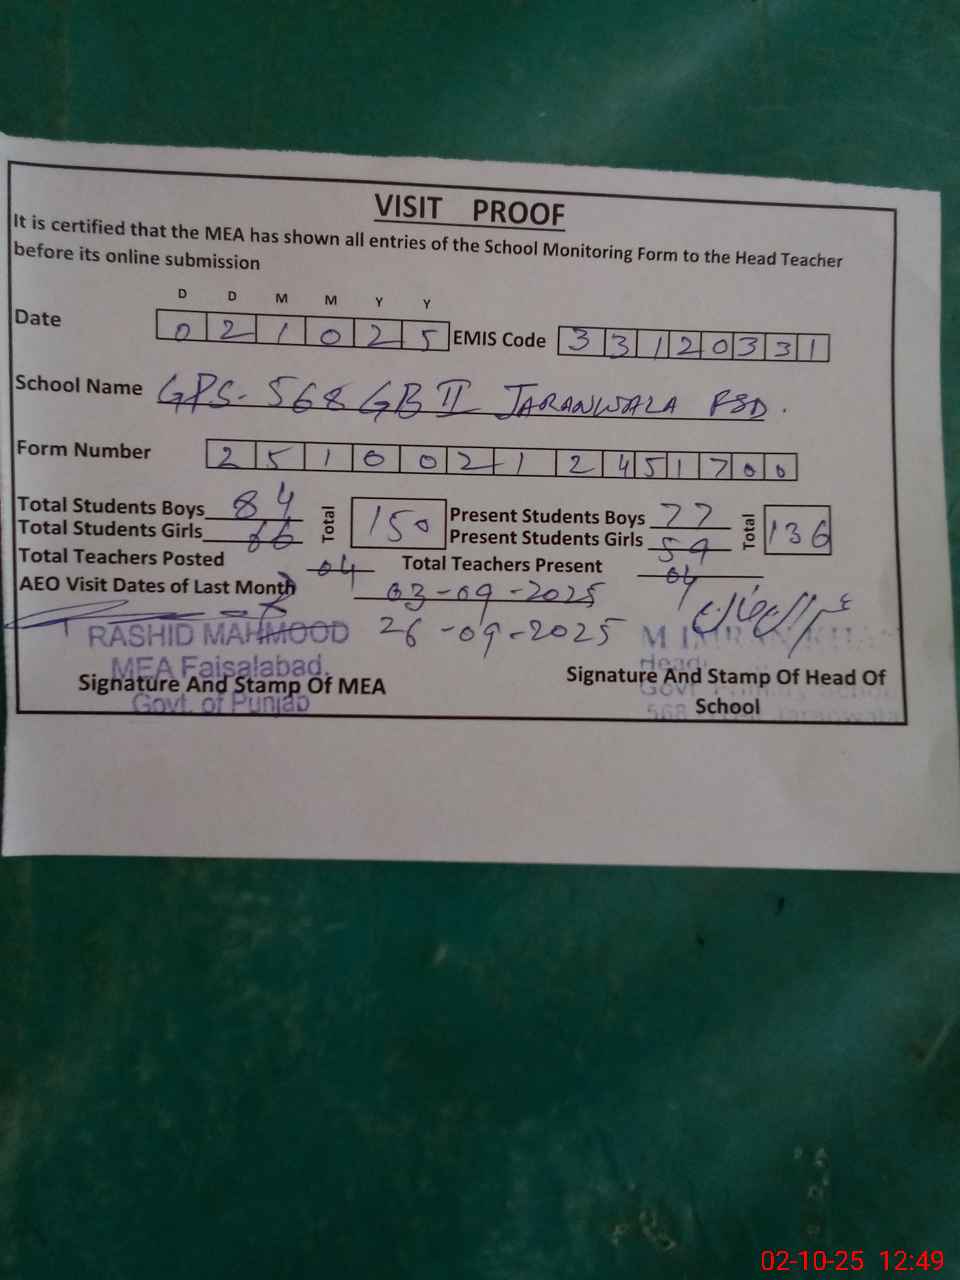 VISIT PROOF
It is certified that the MEA has shown all entries of the School Monitoring Form to the Head Teacher
before its online submission
D D M M Y Y
Date 0 2 1 0 2 5 EMIS Code 3 3 1 2 0 3 3 1
School Name GPS. 568 GB II JARANWALA FSD.
Form Number 2 5 1 0 0 2 1 2 4 5 1 7 0 0
Total Students Boys 84 Total 150 Present Students Boys 77 Total 136
Total Students Girls 66 Present Students Girls 59
Total Teachers Posted 04 Total Teachers Present 04
AEO Visit Dates of Last Month 03-09-2025
26-09-2025
RASHID MAHMOOD
MEA Faisalabad,
Govt. of Punjab
Signature And Stamp Of MEA
M IMRAN KHAN
Head
Govt Primary School
568 Jaranwala
Signature And Stamp Of Head Of
School
02-10-25 12:49